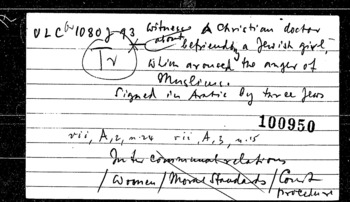 ULC Or 1080 J 93 Witness A Christian doctor
about
Tr befriended by a Jewish girl,
which aroused the anger of
Muslims.
Signed in Arabic by three Jews
100950
vii, A, 2, n. 24 vii, A, 3, n. 15
Inter communal relations
/ Women / Moral Standards / Court
procedure